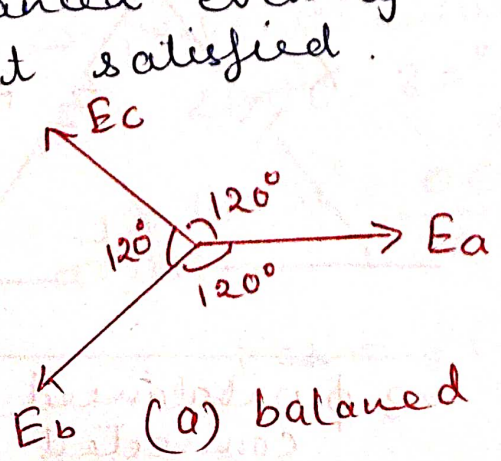 t satisfied.
Ec
120°
120°
Ea
120°
Eb (a) balaned